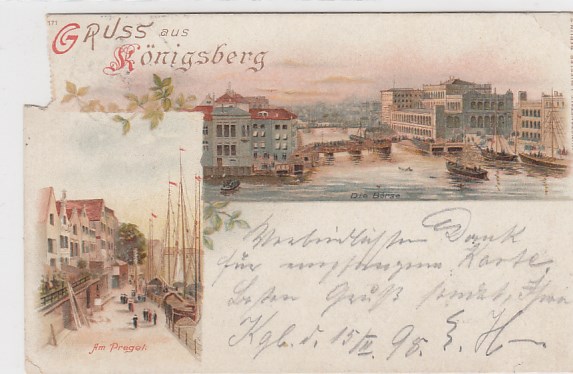 171
Gruss aus
Königsberg
Die Börse
Am Pregel.
Verbindlichsten Dank
für empfangene Karte
Besten Gruß sendet, Ihre
Kgb. d. 15/IX 98. E. H